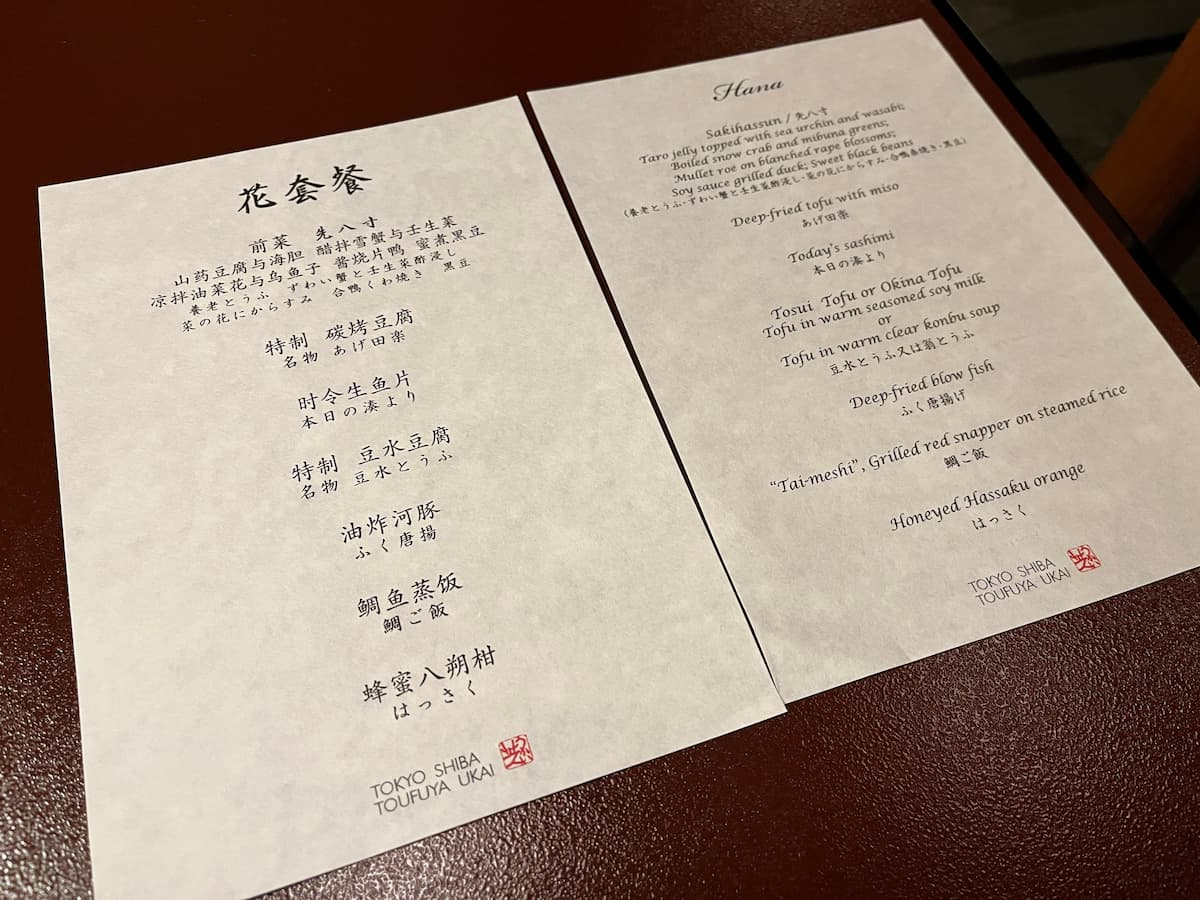 花套餐
前菜 先八寸
山药豆腐与海胆 醋拌雪蟹与壬生菜
凉拌油菜花与乌鱼子 酱烧片鸭 蜜煮黒豆
養老とうふ ずわい蟹と壬生菜酢浸し
菜の花にからすみ 合鴨くわ焼き 黒豆
特制 碳烤豆腐
名物 あげ田楽
时令生鱼片
本日の湊より
特制 豆水豆腐
名物 豆水とうふ
油炸河豚
ふく唐揚
鲷鱼蒸饭
鯛ご飯
蜂蜜八朔柑
はっさく
TOKYO SHIBA
TOUFUYA UKAI
Hana
Sakihassun / 先八寸
Taro jelly topped with sea urchin and wasabi;
Boiled snow crab and mibuna greens;
Mullet roe on blanched rape blossoms;
Soy sauce grilled duck; Sweet black beans
(養老とうふ・ずわい蟹と壬生菜酢浸し・菜の花にからすみ・合鴨桑焼き・黒豆)
Deep-fried tofu with miso
あげ田楽
Today's sashimi
本日の湊より
Tosui Tofu or Okina Tofu
Tofu in warm seasoned soy milk
or
Tofu in warm clear konbu soup
豆水とうふ又は翁とうふ
Deep-fried blow fish
ふく唐揚げ
"Tai-meshi", Grilled red snapper on steamed rice
鯛ご飯
Honeyed Hassaku orange
はっさく
TOKYO SHIBA
TOUFUYA UKAI